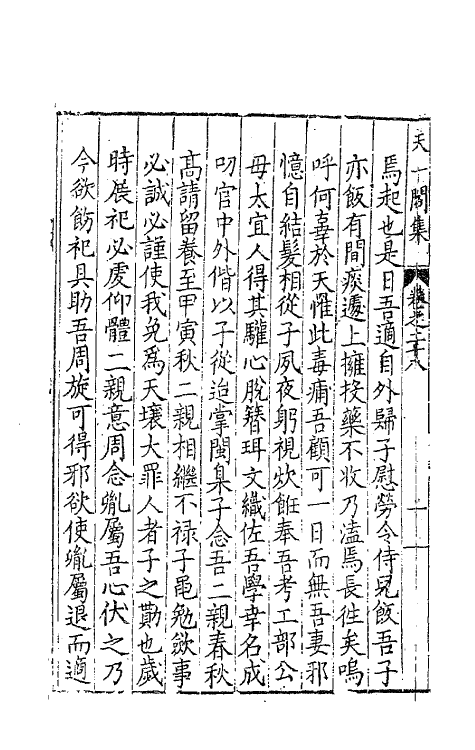 天一閣集 卷之二十八
焉起也是日吾適自外歸子慰勞令侍兒飯吾子
亦飯有間痰遽上擁投藥不收乃溘焉長徃矣嗚
呼何辜於天罹此毒痛吾顧可一日而無吾妻邪
憶自結髮相從子夙夜躬視炊飪奉吾考工部公
母太宜人得其驩心脫簪珥文織佐吾學幸名成
叨官中外偕以子從迨掌閩臬子念吾二親春秋
高請留養至甲寅秋二親相繼不祿子黽勉歛事
必誠必謹使我免爲天壤大罪人者子之勤也歲
時展祀必虔仰體二親意周念胤屬吾心伏之乃
今欲飭祀具助吾周旋可得邪欲使胤屬退而適